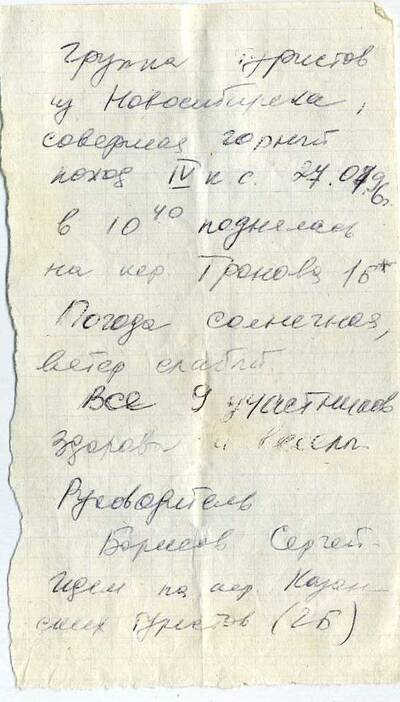 Группа туристов
из Новосибирска,
совершая горный
поход IV к.с. 27.07.96г.
в 10 40 поднялась
на пер. Тронова 1б*
Погода солнечная,
ветер слабый.
Все 9 участников
здоровы и веселы
Руководитель
Борисов Сергей
Идем на пер. Казан-
ских туристов (2Б)